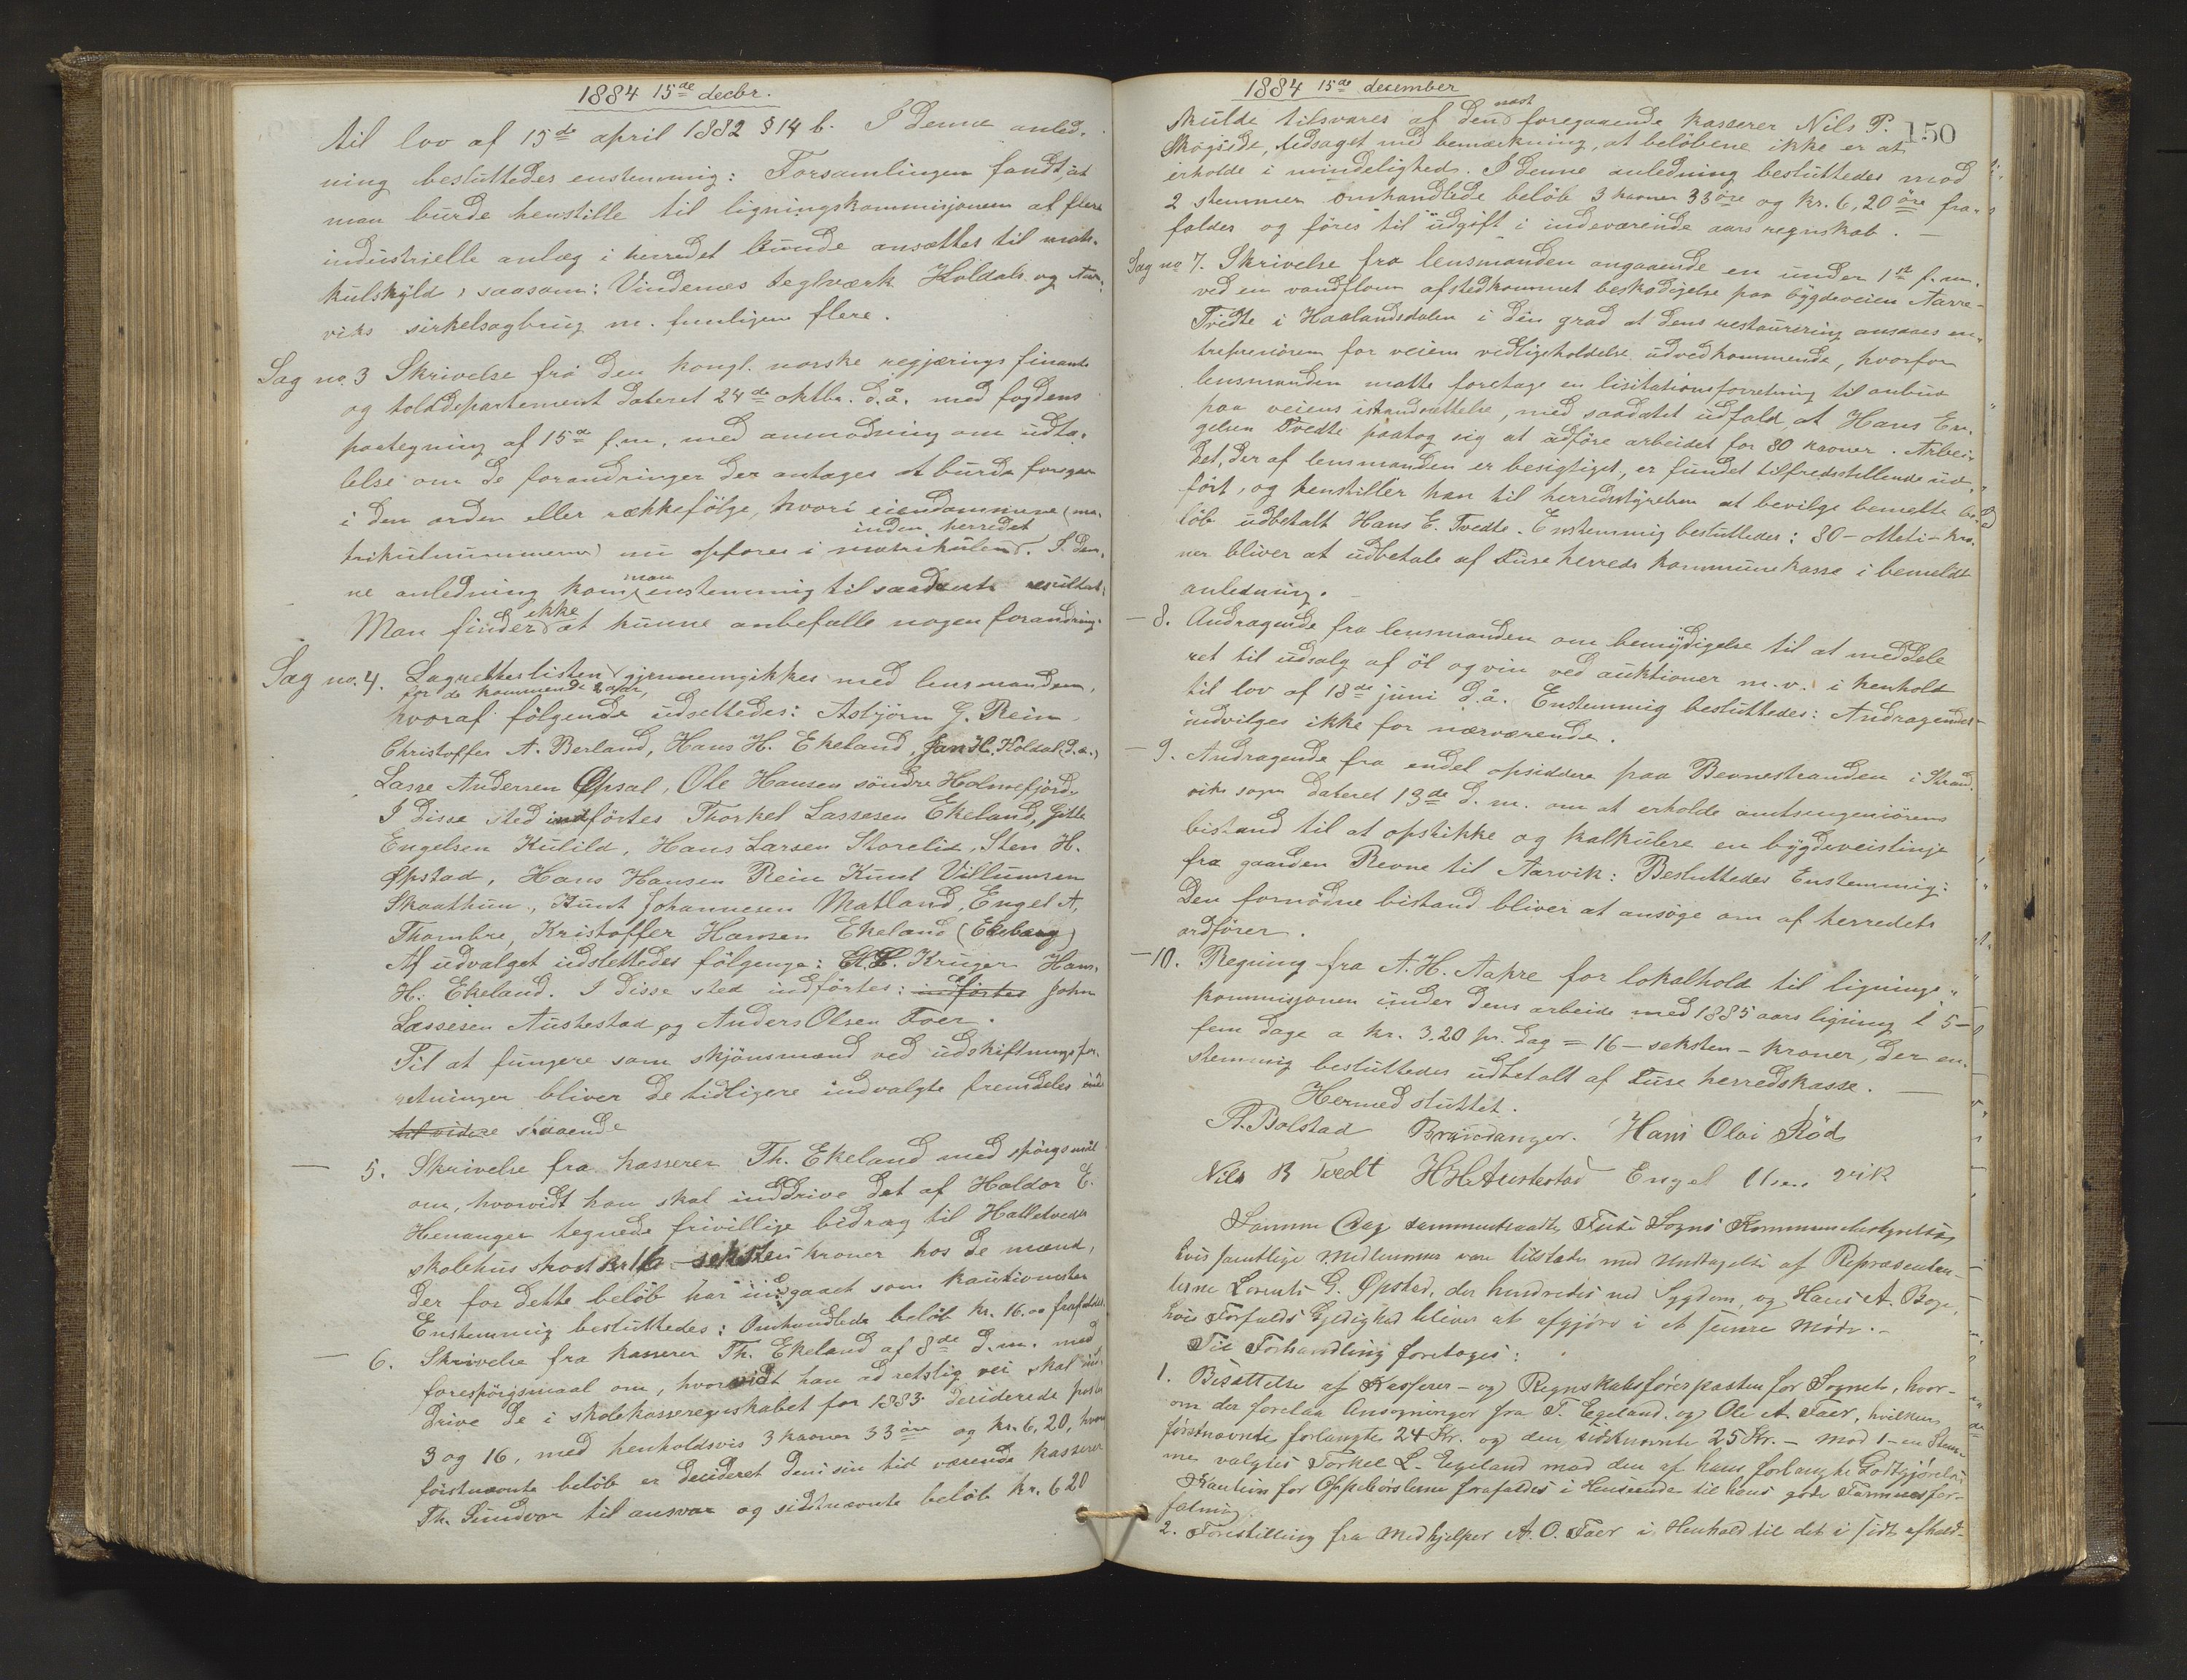 1884 15de decbr.
til lov af 15de april 1882 § 14 b. I denne anled-
ning besluttedes enstemmig: Forsamlingen fandt, at
man burde henstille til ligningskommisjonen at flere
industrielle anlæg i herredet kunde ansættes til matri-
kulskyld, saasom: Vindenes teglværk Holdals og
viks sirkelsagbrug m. fuuligen flere.
Sag no. 3 Skrivelse fra den kongl. norske regjærings finants
og tolddepartement dateret 24de oktbr. d.å. med fogdens
paategning af 15de f.m. med anmodning om udta-
lelse om de forandringer der antages at burde foregaa
i den orden eller rækkefölge, hvori eiendommene (ma-
trikulnummerne) nu opföres i matrikülen inden herredet. I den-
ne anledning kom man enstemmig til saadant resultat:
Man finder ikke at kunne anbefalle nogen forandring.
Sag no. 4. Lagrettes listen for de kommende 2 aar, gjennemgikkes med lensmanden,
hvoraf fölgende udslettedes: Asbjörn G. Rein
Christoffer A. Berland, Hans H. Ekeland, Jan H. Holdal (d.æ.)
Lasse Andersen Öpsal, Ole Hansen söndre Holmefjord.
I disse sted indförtes Thorkel Lassesen Ekeland, Gitle
Engelsen Kulild, Hans Larsen Storeli, Sten H.
Öpstad, Hans Hansen Rein Knut Villumsen
Skaathun, Knut Johannesen Matland, Engel A.
Thombre, Kristoffer Hansen Ekeland (Ekeberg)
Af udvalget udslettedes fölgenge: Kruger Hans
H. Ekeland. I disse sted indförtes: indförtes John
Lassesen Austestad, og Anders Olsen Foer.
Til at fungere som skjönsmænd ved udskiftningsfor-
retninger bliver de tidligere indvalgte fremdeles
til videre staaende
— 5. Skrivelse fra kasserer Th. Ekeland med spörgsmål
om, hvorvidt han skal inddrive det af Haldor E.
Henanger tegnede frivillige bidrag til Halletvedt
skolehus stort kr 16 – seksten kroner hos de mænd,
der for dette belöb har indgaaet som kautionister
Enstemmig besluttedes: Omhandlede belöb kr. 16.00 frafaldes.
— 6. Skrivelse fra kasserer Th. Ekeland af 8de d.m. med
forespörgsmaal om, hvorvidt han ad retslig vei skal ind-
drive de i skolekasseregnskabet for 1883 deciderede poster
3 og 16, med henholdsvis 3 kroner 33 öre og kr. 6,20, hvoraf
förstnævnte belöb er decideret deni sin tid værende kasserer
Th. Sundvor til ansvar og sidstnævnte belöb kr. 6 20
1884 15de desember
150
skulde tilsvares af den næst foregaaende kasserer Nils P.
Skogseide, ledsaget med bemærkning, at belöbene ikke er at
erholde i mindelighed. I denne anledning besluttedes mod
2 stemmer omhandlede belöb 3 kroner 33 öre og kr. 6,20 öre fra-
faldes og föres til udgift i indeværende aars regnskab. —
Sag no 7. Skrivelse fra lensmanden angaaende en under 1ste f.m.
ved en vandflom afstedkommet beskadigelse paa bygdeveien Aarre-
Tvedte i Haalandsdalen i den grad at dens restaurering ansaaes en-
treprenören for veiens vedligeholdelse udvedkommende, hvorfor
lensmanden matte foretage en lisitationsforretning til anbud
paa veiens istandsættelse, med saadatet udfald, at Hans En-
gelsen Tvedte paatog sig at udföre arbeidet for 80 kroner. Arbei-
det, der af lensmanden er besigtiget, er fundet tilfredsstillende ud-
fört, og henstiller han til herredsstyrelsen at bevilge bemelte be-
löb udbetalt Hans E. Tvedte. Enstemmig besluttedes: 80 – otteti – kro-
ner bliver at udbetale af Fuse herreds kommunekasse i bemeldt
anledning.
— 8. Andragende fra lensmanden om bemyndigelse til at meddele
ret til udsalg af öl og vin ved auktioner m.v. i henhold
til lov af 18de juni d.å. Enstemmig besluttedes: Andragendet
indvilges ikke for nærværende.
— 9. Andragende fra endel opsiddere paa Bevnestranden i Strand-
viks sogn dateret 13de d.m. om at erholde amtsingeniörens
bistand til at opstikke og kalkulere en bygdeveislinje
fra gaarden Revne til Aarvik: Besluttedes Enstemmig:
Den fornödne bistand bliver at ansöge om af herredets
ordförer.
— 10. Regning fra A. H. Aakre for lokalhold til lignings-
kommisjonen under dens arbeide med 1885 aars ligning i 5 –
fem dage a kr. 3.20 pr. dag = 16 – seksten – kroner, der en-
stemmig besluttedes udbetalt af Fuse herredskasse. —
Hermed sluttet.
R. Bolstad Brundanger. Hans Olai Röd
Nils B Tvedt H H Austestad Engel vik
Samme Dag sammentraadte Fuse Sogns Kommunebestyrelse,
hvis samtlige Medlemmer vare tilstede med Undtagelse af Repræsentan-
terne Lorents G. Øpsted, der hindredes ved Sygdom, og Hans A. Boge,
hvis Forfalds Gyldighed bliver at afgjøre i et senere Møde. –
Til Forhandling foretoges:
1. Besættelse af Kasserer- og Regnskabsførerposten for Sognet, hvor-
om der forelaa Ansøgninger fra T. Egeland og Ole A. Faer, hvilken
førstnævnte forlangte 24 Kr. og den sidstnævnte 25 Kr. – Mod 1 – en Stem-
me valgtes Torkel L. Egeland mod den af ham forlangte Godtgjørelse.
Kaution for Oppebørslerne frafaldes i Henseende til hans gode Formuesfor-
fatning.
2. Forestilling fra Medhjelper A. O. Faer i Henhold til det i sidst afhold-